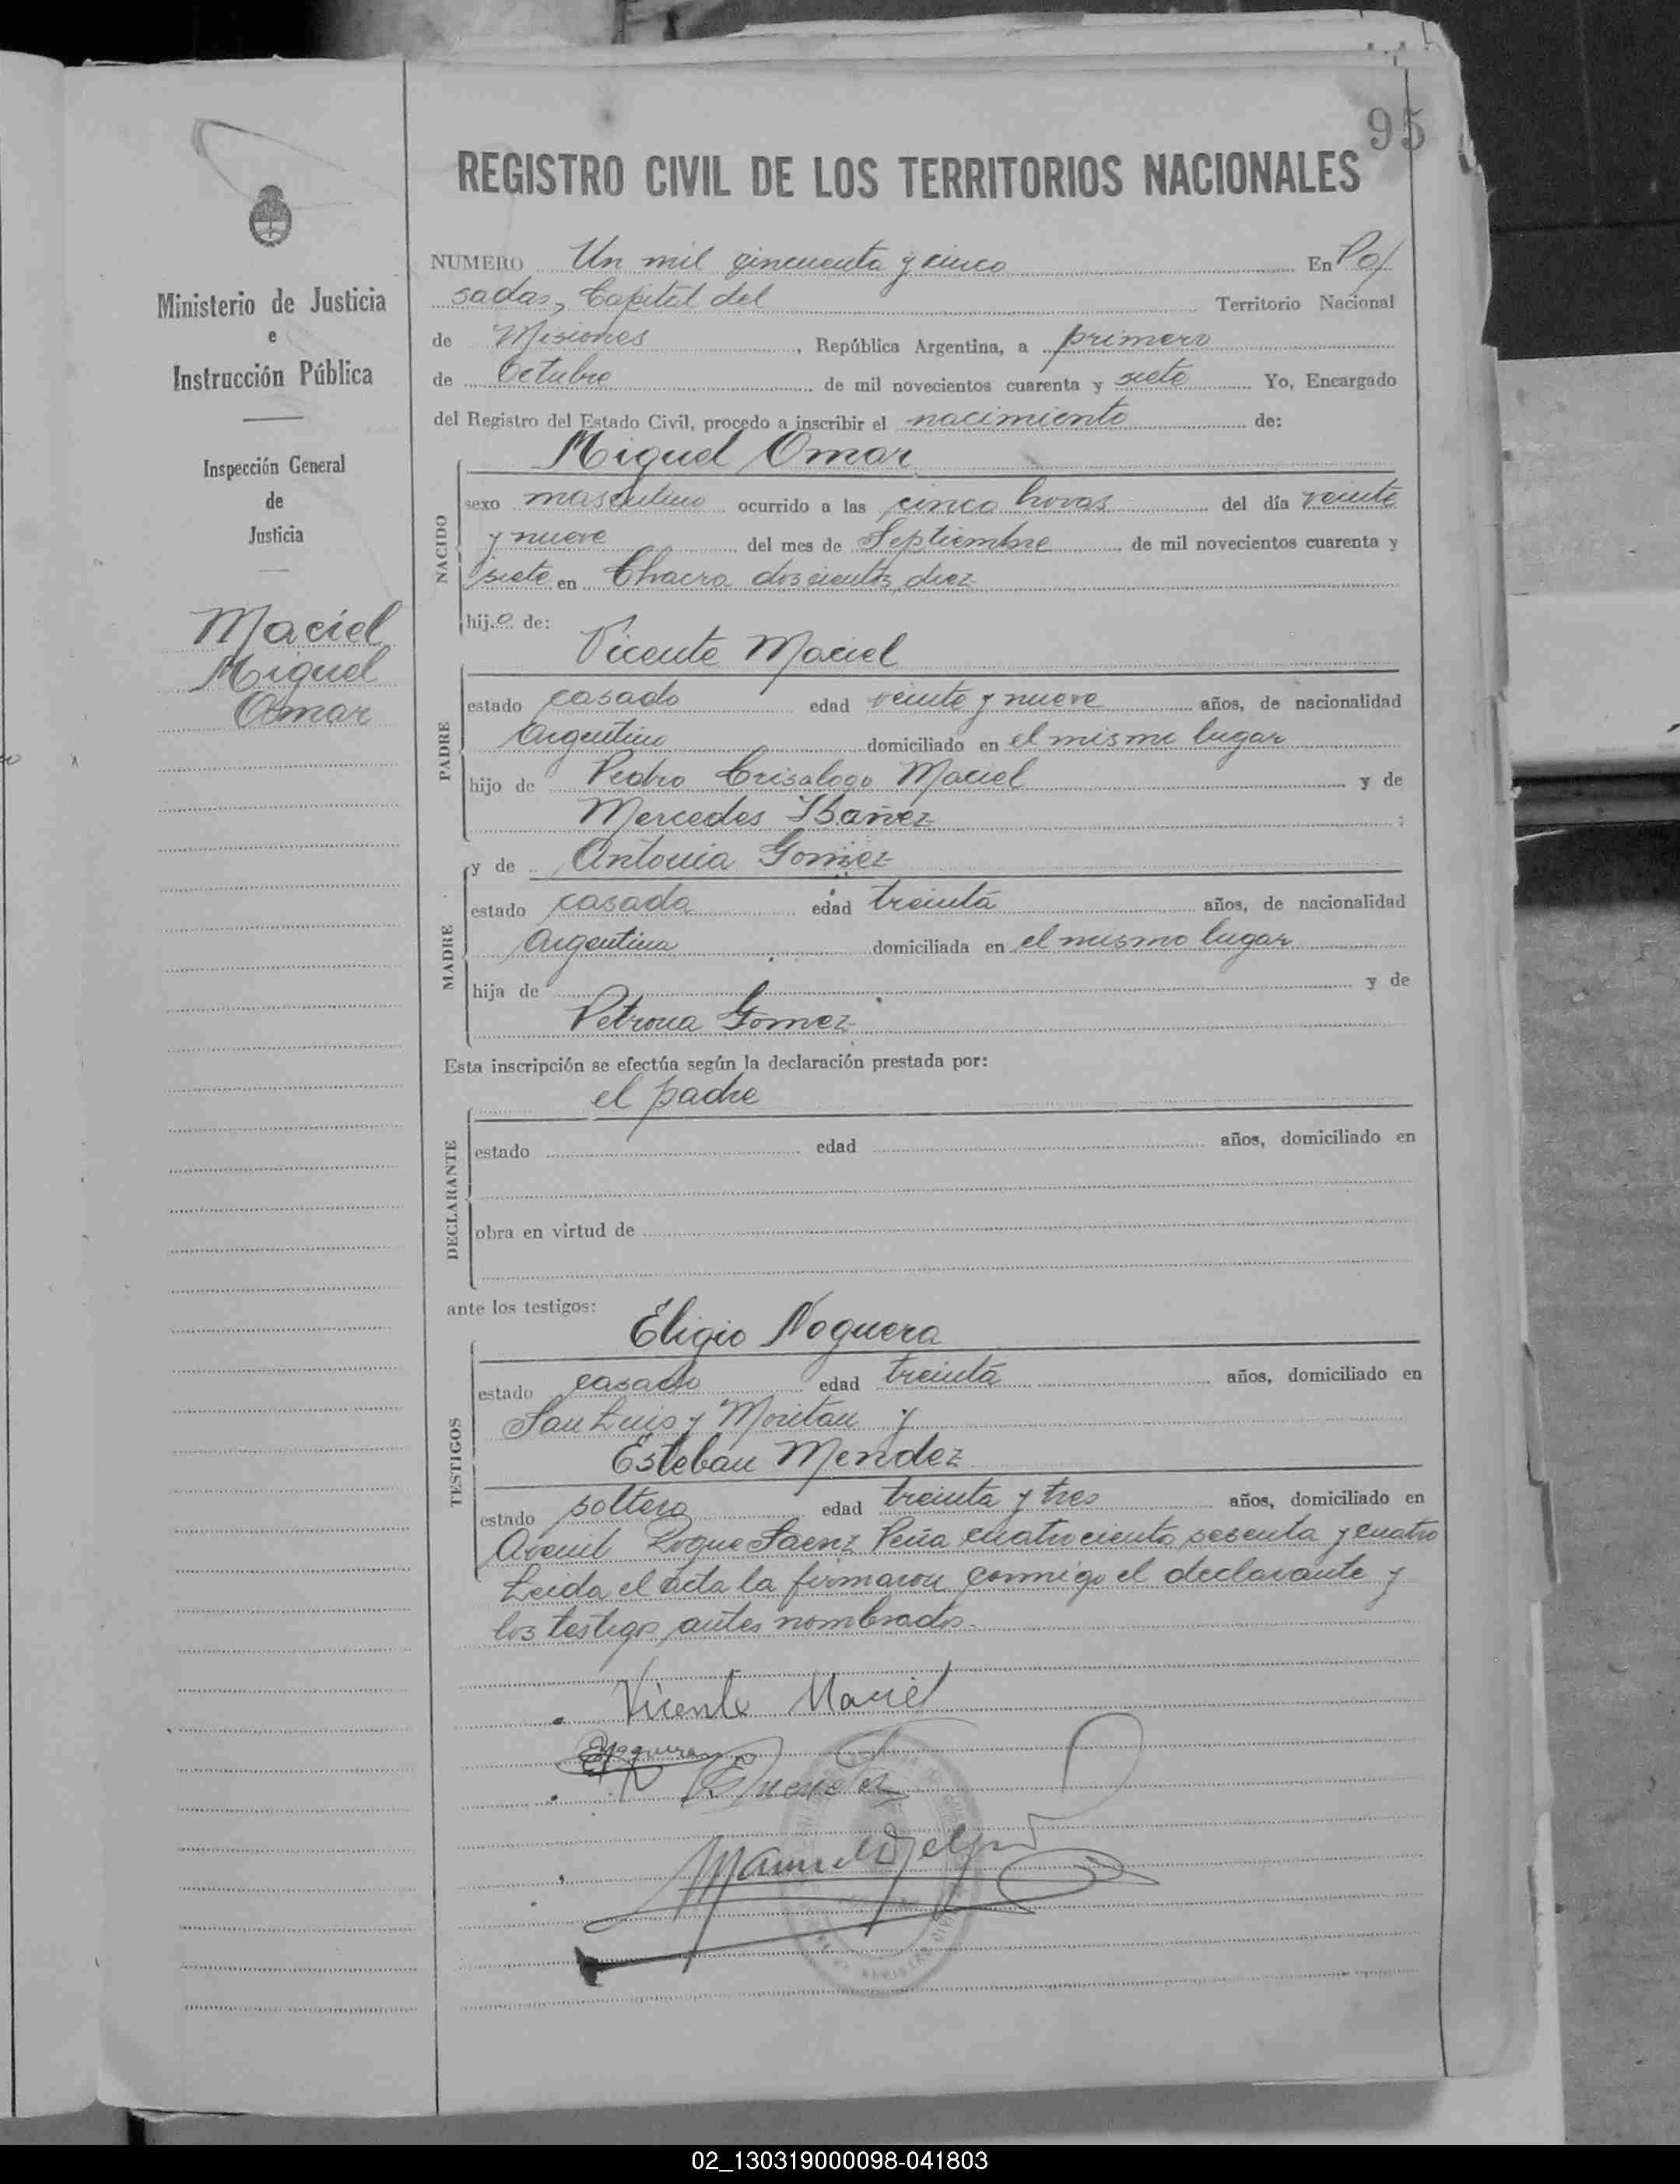 95
REGISTRO CIVIL DE LOS TERRITORIOS NACIONALES
Ministerio de Justicia
e
Instrucción Pública
Inspección General
de
Justicia
Maciel
Miguel
Omar
NUMERO Un mil cincuenta y cinco En Po/
sadas, Capital del Territorio Nacional
de Misiones, República Argentina, a primero
de Octubre de mil novecientos cuarenta y siete Yo, Encargado
del Registro del Estado Civil, procedo a inscribir el nacimiento de:
Miguel Omar
NACIDO
sexo masculino ocurrido a las cinco horas del día veinte
y nueve del mes de Septiembre, de mil novecientos cuarenta y
siete en Chacra doscientos diez
hijo de:
Vicente Maciel
PADRE
estado casado edad veinte y nueve años, de nacionalidad
Argentino domiciliado en el mismo lugar
hijo de Pedro Crisologo Maciel y de
Mercedes Ibañez ;
y de Antonia Gomez
MADRE
estado casada edad treinta años, de nacionalidad
Argentina domiciliada en el mismo lugar
hija de y de
Petrona Gomez
Esta inscripción se efectúa según la declaración prestada por:
el padre
DECLARANTE
estado edad años, domiciliado en
obra en virtud de
ante los testigos:
Eligio Noguera
TESTIGOS
estado casado edad treinta años, domiciliado en
San Luis y Moritan y
Esteban Mendez
estado soltero edad treinta y tres años, domiciliado en
Roque Saenz Peña cuatrociento sesenta y cuatro
Leida el acta la firmaron conmigo el declarante y
los testigos antes nombrados.
Vicente Maciel
ENoguera
02_130319000098-041803